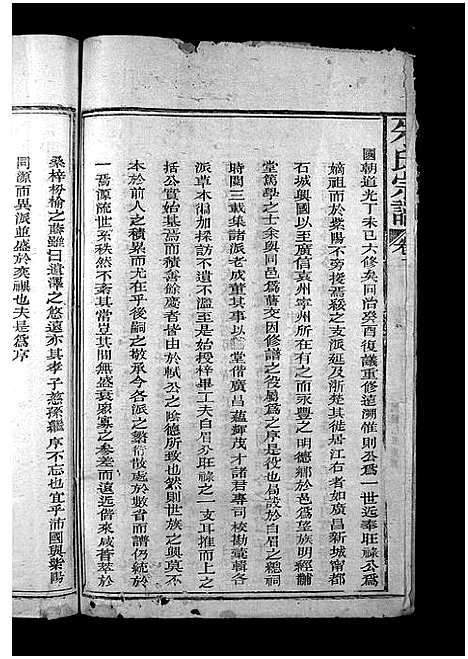 朱氏宗譜 卷一
國朝道光丁未已大修矣同治癸酉復議重修遠溯惟則公爲一世遠奉旺祿公爲
嫡祖而於紫陽不旁接焉緊之支派延及浙楚其徙居江右者如廣昌新城甯都
石城興國以至廣信袁州寧州所在而有永豐之明德鄉於邑爲望族明經黼
堂篤學之士余與同邑爲舊交因修譜之役屬爲之序是役也設於白眉之總祠
時閱三載集諸派老成董其事以堂偕廣昌蘊輝茂才諸君專司校勘彙輯各
派草本備加採訪不遺不濫至是始授梓畢工夫白眉分旺祿之一支耳推而上之
括公實始基焉而積善餘慶者皆由於軾公之陰德所致也然則世族之興莫不
本於前人之積累而尤在乎後嗣之敬承今各派之繁衍散處於數省而譜仍統於
一焉源流世系秩然不紊其常豈以其間無盛衰衆寡之參差而遠近皆來咸萃於
桑梓枌榆之蔭雖曰遺澤之悠遠亦其孝子慈孫繼序不忘也宜乎沛國與紫陽
同源而異派並盛於奕禩也夫是爲序